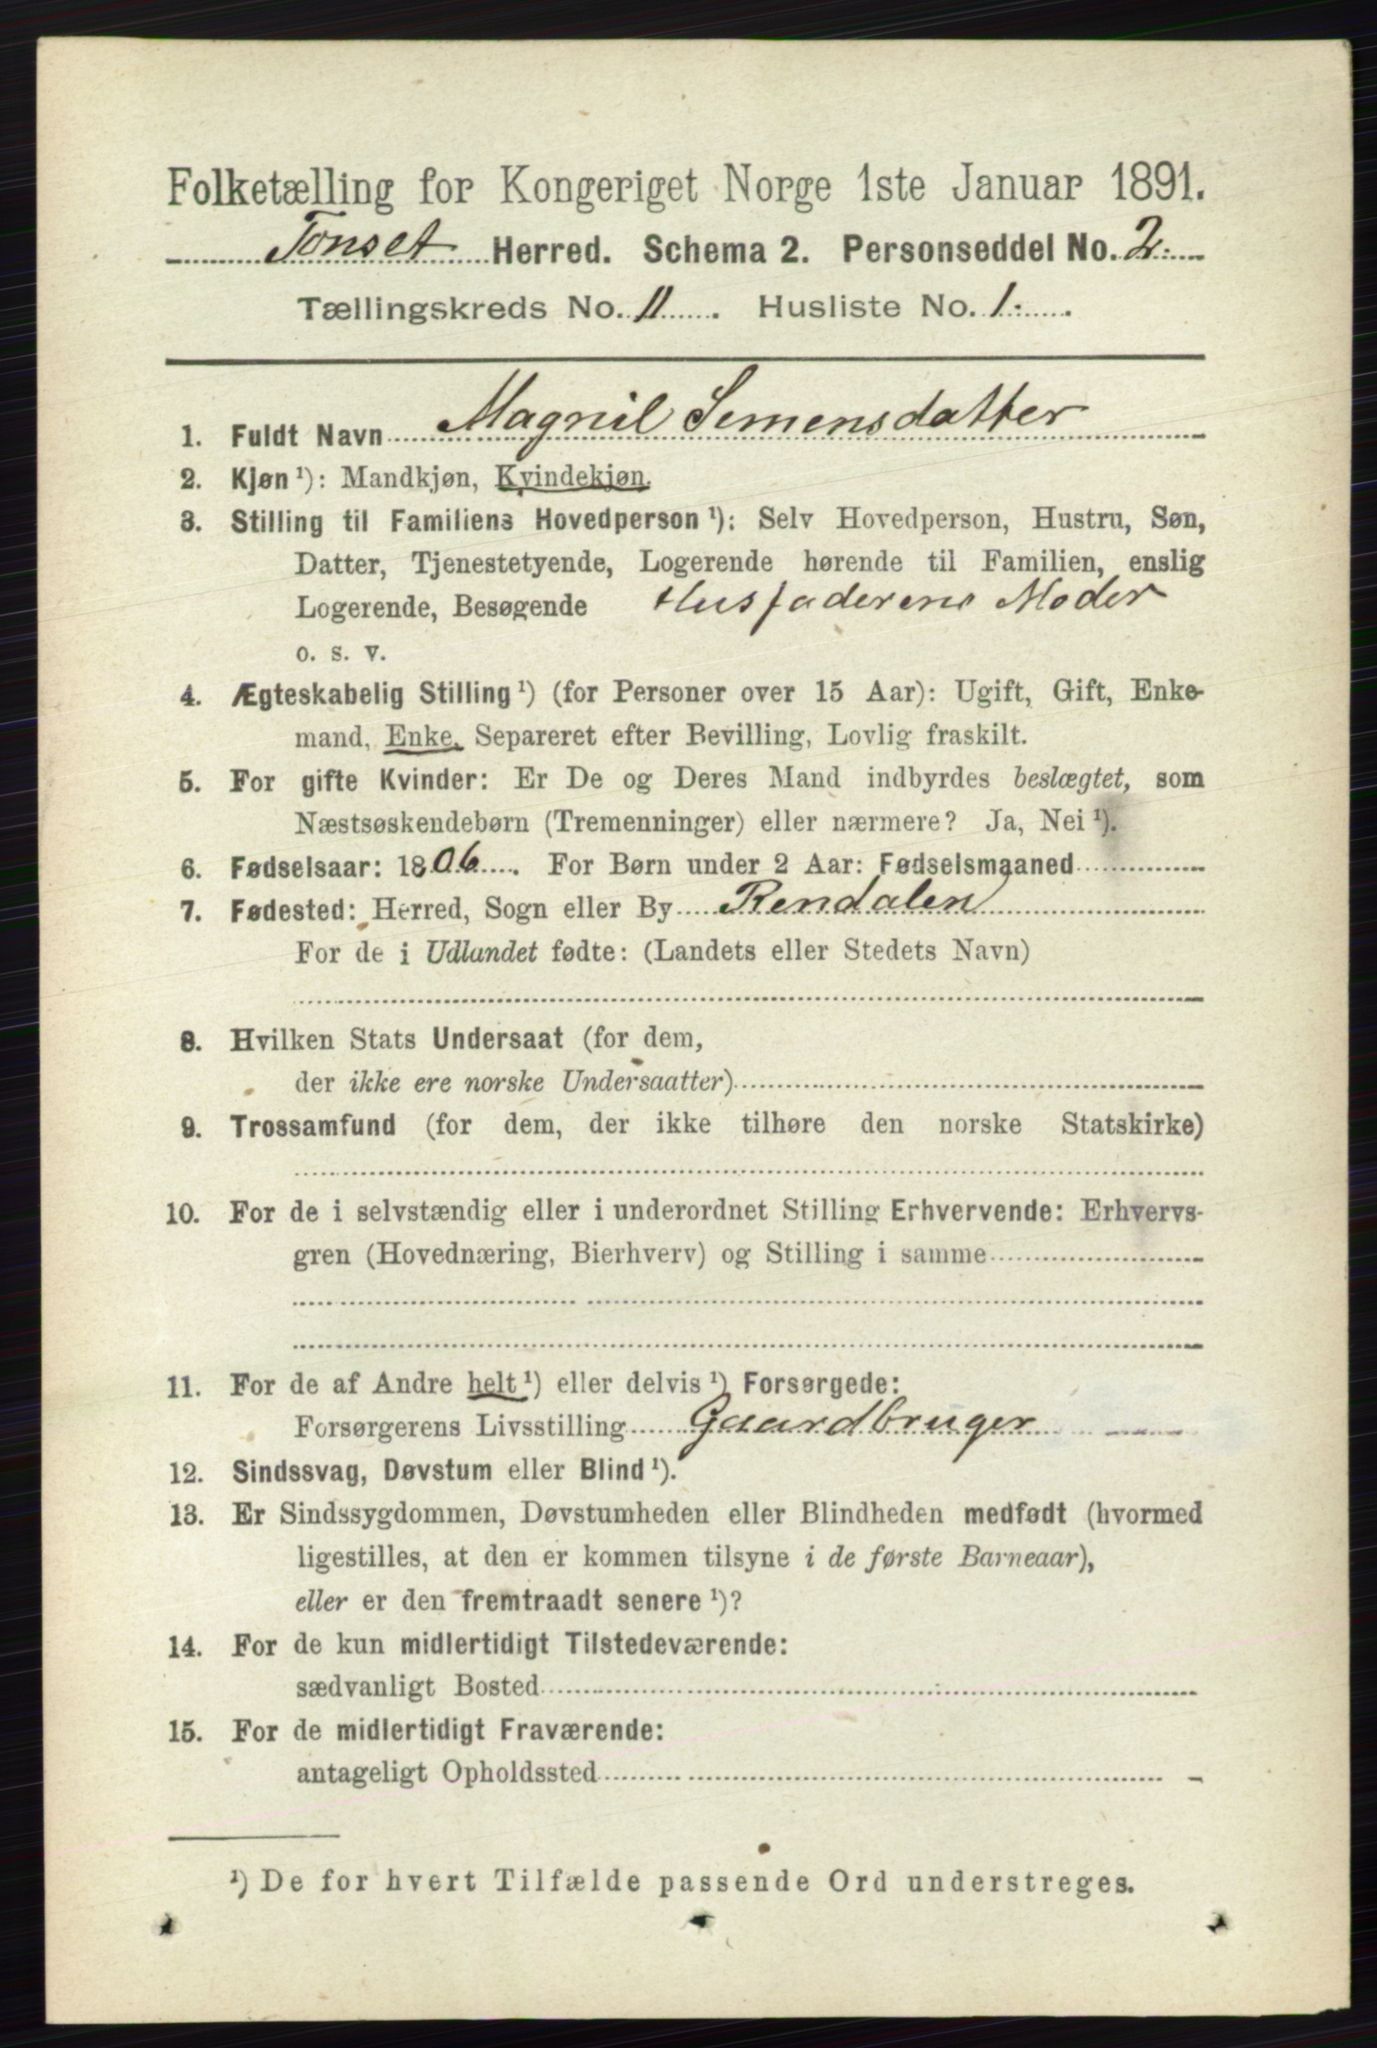 Folketælling for Kongeriget Norge 1ste Januar 1891.
Tønset Herred. Schema 2. Personseddel No. 2.
Tællingskreds No. 11. Husliste No. 1.
1. Fuldt Navn Magnil Semensdatter
2. Kjøn ¹): Mandkjøn, Kvindekjøn.
3. Stilling til Familiens Hovedperson ¹): Selv Hovedperson, Hustru, Søn,
Datter, Tjenestetyende, Logerende hørende til Familien, enslig
Logerende, Besøgende Husfaderens Moder
o. s. v.
4. Ægteskabelig Stilling ¹) (for Personer over 15 Aar): Ugift, Gift, Enke-
mand, Enke, Separeret efter Bevilling, Lovlig fraskilt.
5. For gifte Kvinder: Er De og Deres Mand indbyrdes beslægtet, som
Næstsøskendebørn (Tremenninger) eller nærmere? Ja, Nei ¹).
6. Fødselsaar: 1806. For Børn under 2 Aar: Fødselsmaaned
7. Fødested: Herred, Sogn eller By Rendalen
For de i Udlandet fødte: (Landets eller Stedets Navn)
8. Hvilken Stats Undersaat (for dem,
der ikke ere norske Undersaatter)
9. Trossamfund (for dem, der ikke tilhøre den norske Statskirke)
10. For de i selvstændig eller i underordnet Stilling Erhvervende: Erhvervs-
gren (Hovednæring, Bierhverv) og Stilling i samme
11. For de af Andre helt ¹) eller delvis ¹) Forsørgede:
Forsørgerens Livsstilling Gaardbruger
12. Sindssvag, Døvstum eller Blind ¹).
13. Er Sindssygdommen, Døvstumheden eller Blindheden medfødt (hvormed
ligestilles, at den er kommen tilsyne i de første Barneaar),
eller er den fremtraadt senere ¹)?
14. For de kun midlertidigt Tilstedeværende:
sædvanligt Bosted
15. For de midlertidigt Fraværende:
antageligt Opholdssted
¹) De for hvert Tilfælde passende Ord understreges.